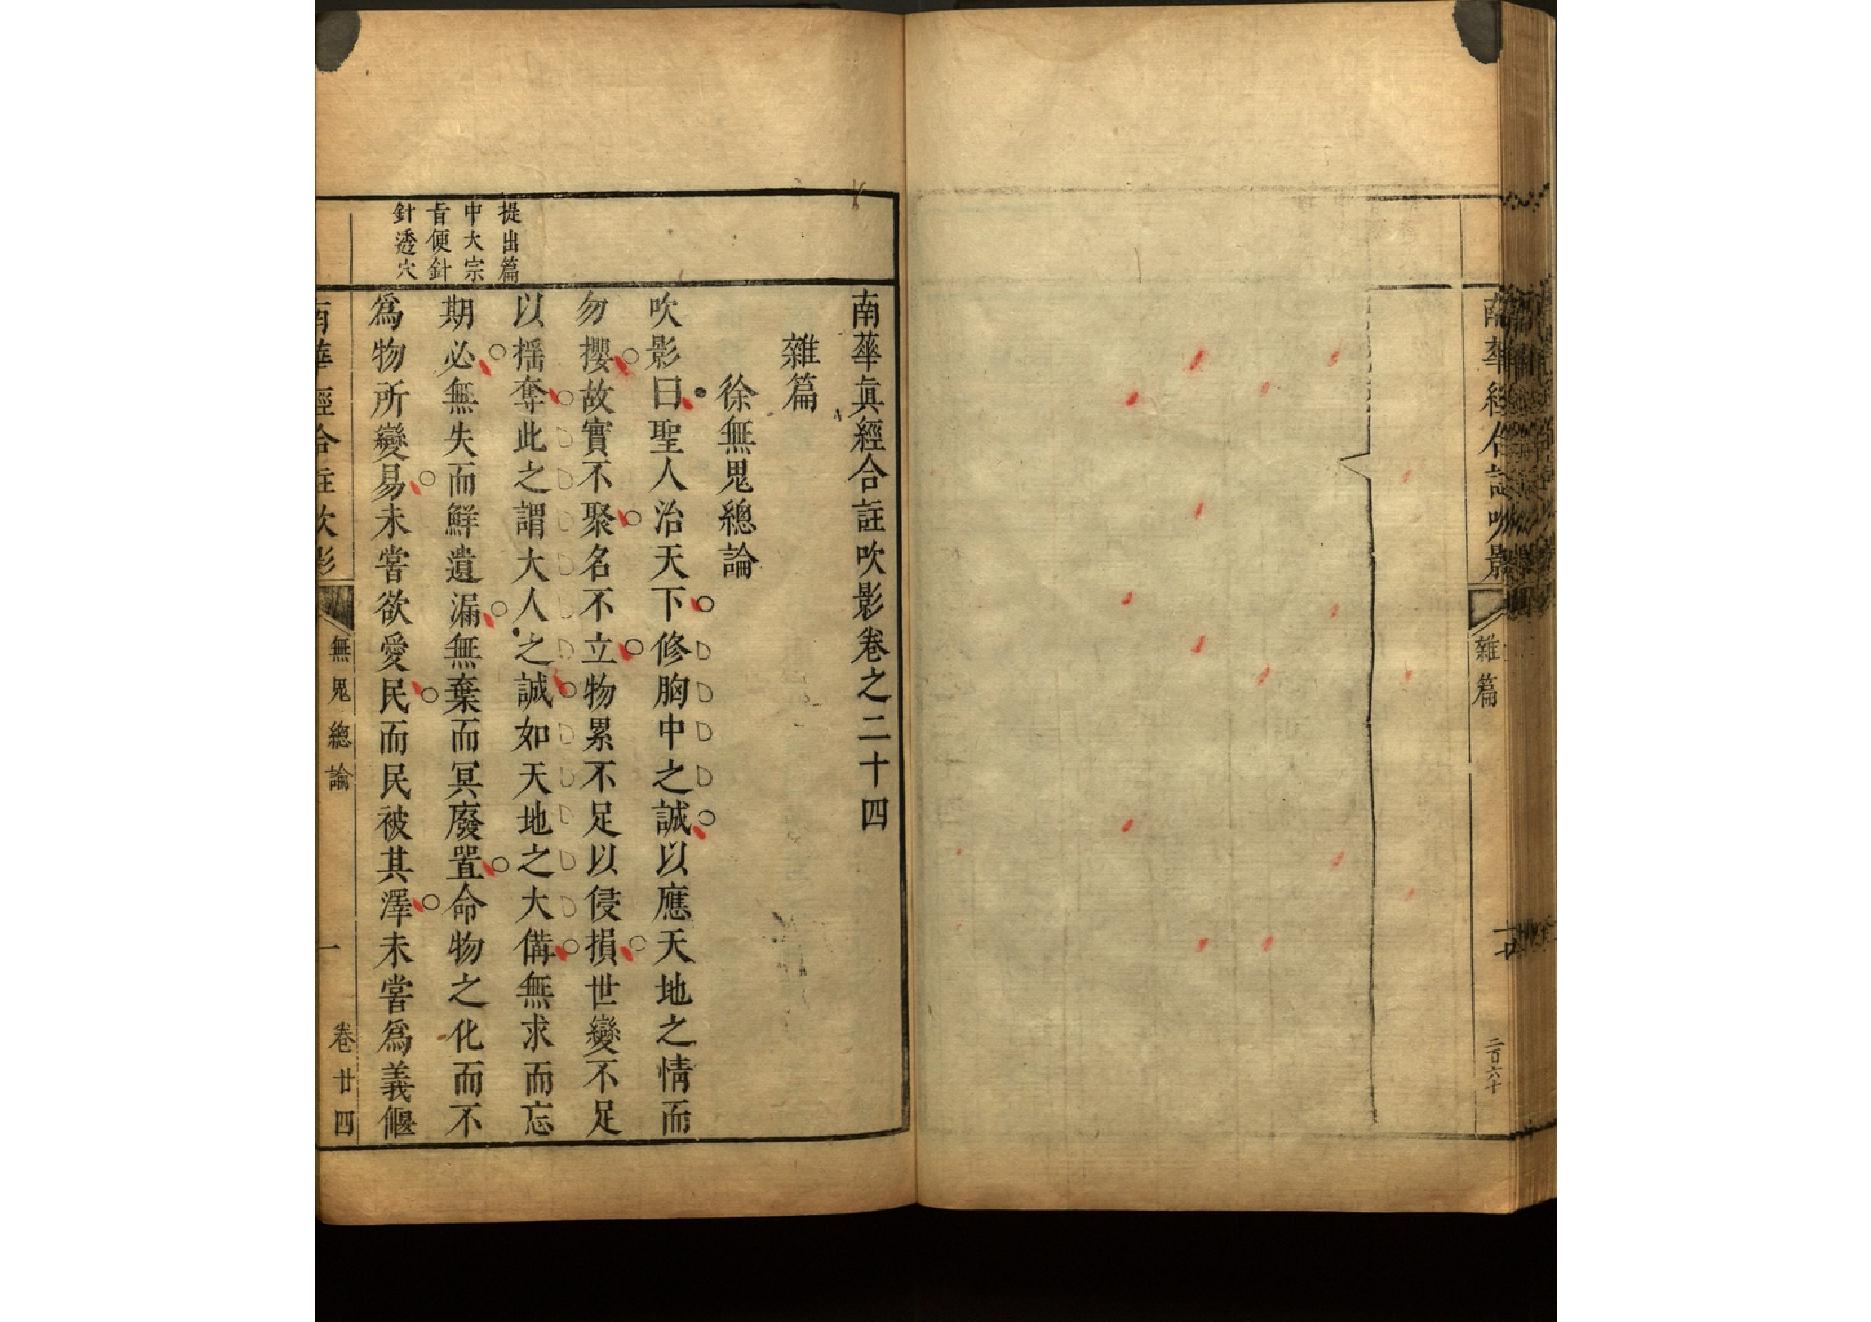 南華經合註吹影
雜篇
二百六十
南華真經合註吹影卷之二十四
雜篇
徐無鬼總論
吹影曰聖人治天下修胸中之誠以應天地之情而
勿攖故實不聚名不立物累不足以侵損世變不足
以搖奪此之謂大人之誠如天地之大備無求而忘
期必無失而鮮遺漏無棄而冥廢置命物之化而不
為物所變易未嘗欲愛民而民被其澤未嘗為義偃
提出篇
中大宗
旨便針
針透穴
南華經合註吹影
無鬼總論
一
卷廿四